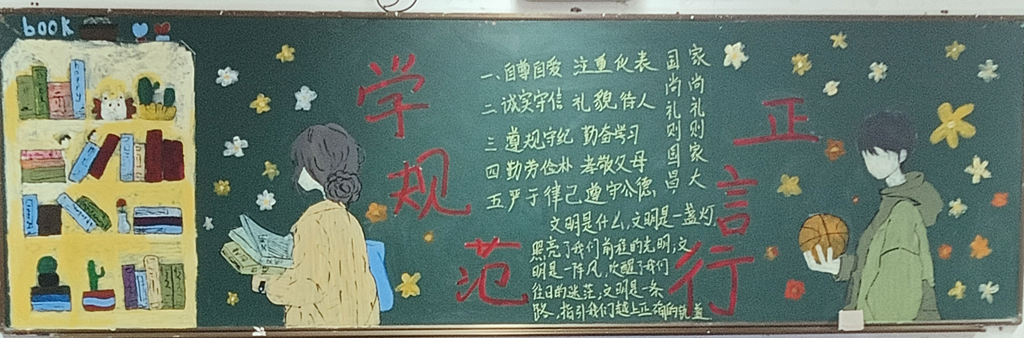 book
happy
学
规
范
一、自尊自爱 注重仪表
二诚实守信 礼貌待人
三遵规守纪 勤奋学习
四勤劳俭朴 孝敬父母
五严于律己遵守公德
国家
尚尚
礼礼
则则
国家
昌大
文明是什么,文明是一盏灯,
照亮了我们前程的光明,文
明是一阵风,吹醒了我们
往日的迷茫,文明是一条
路,指引我们踏上正确的轨道
正
言
行